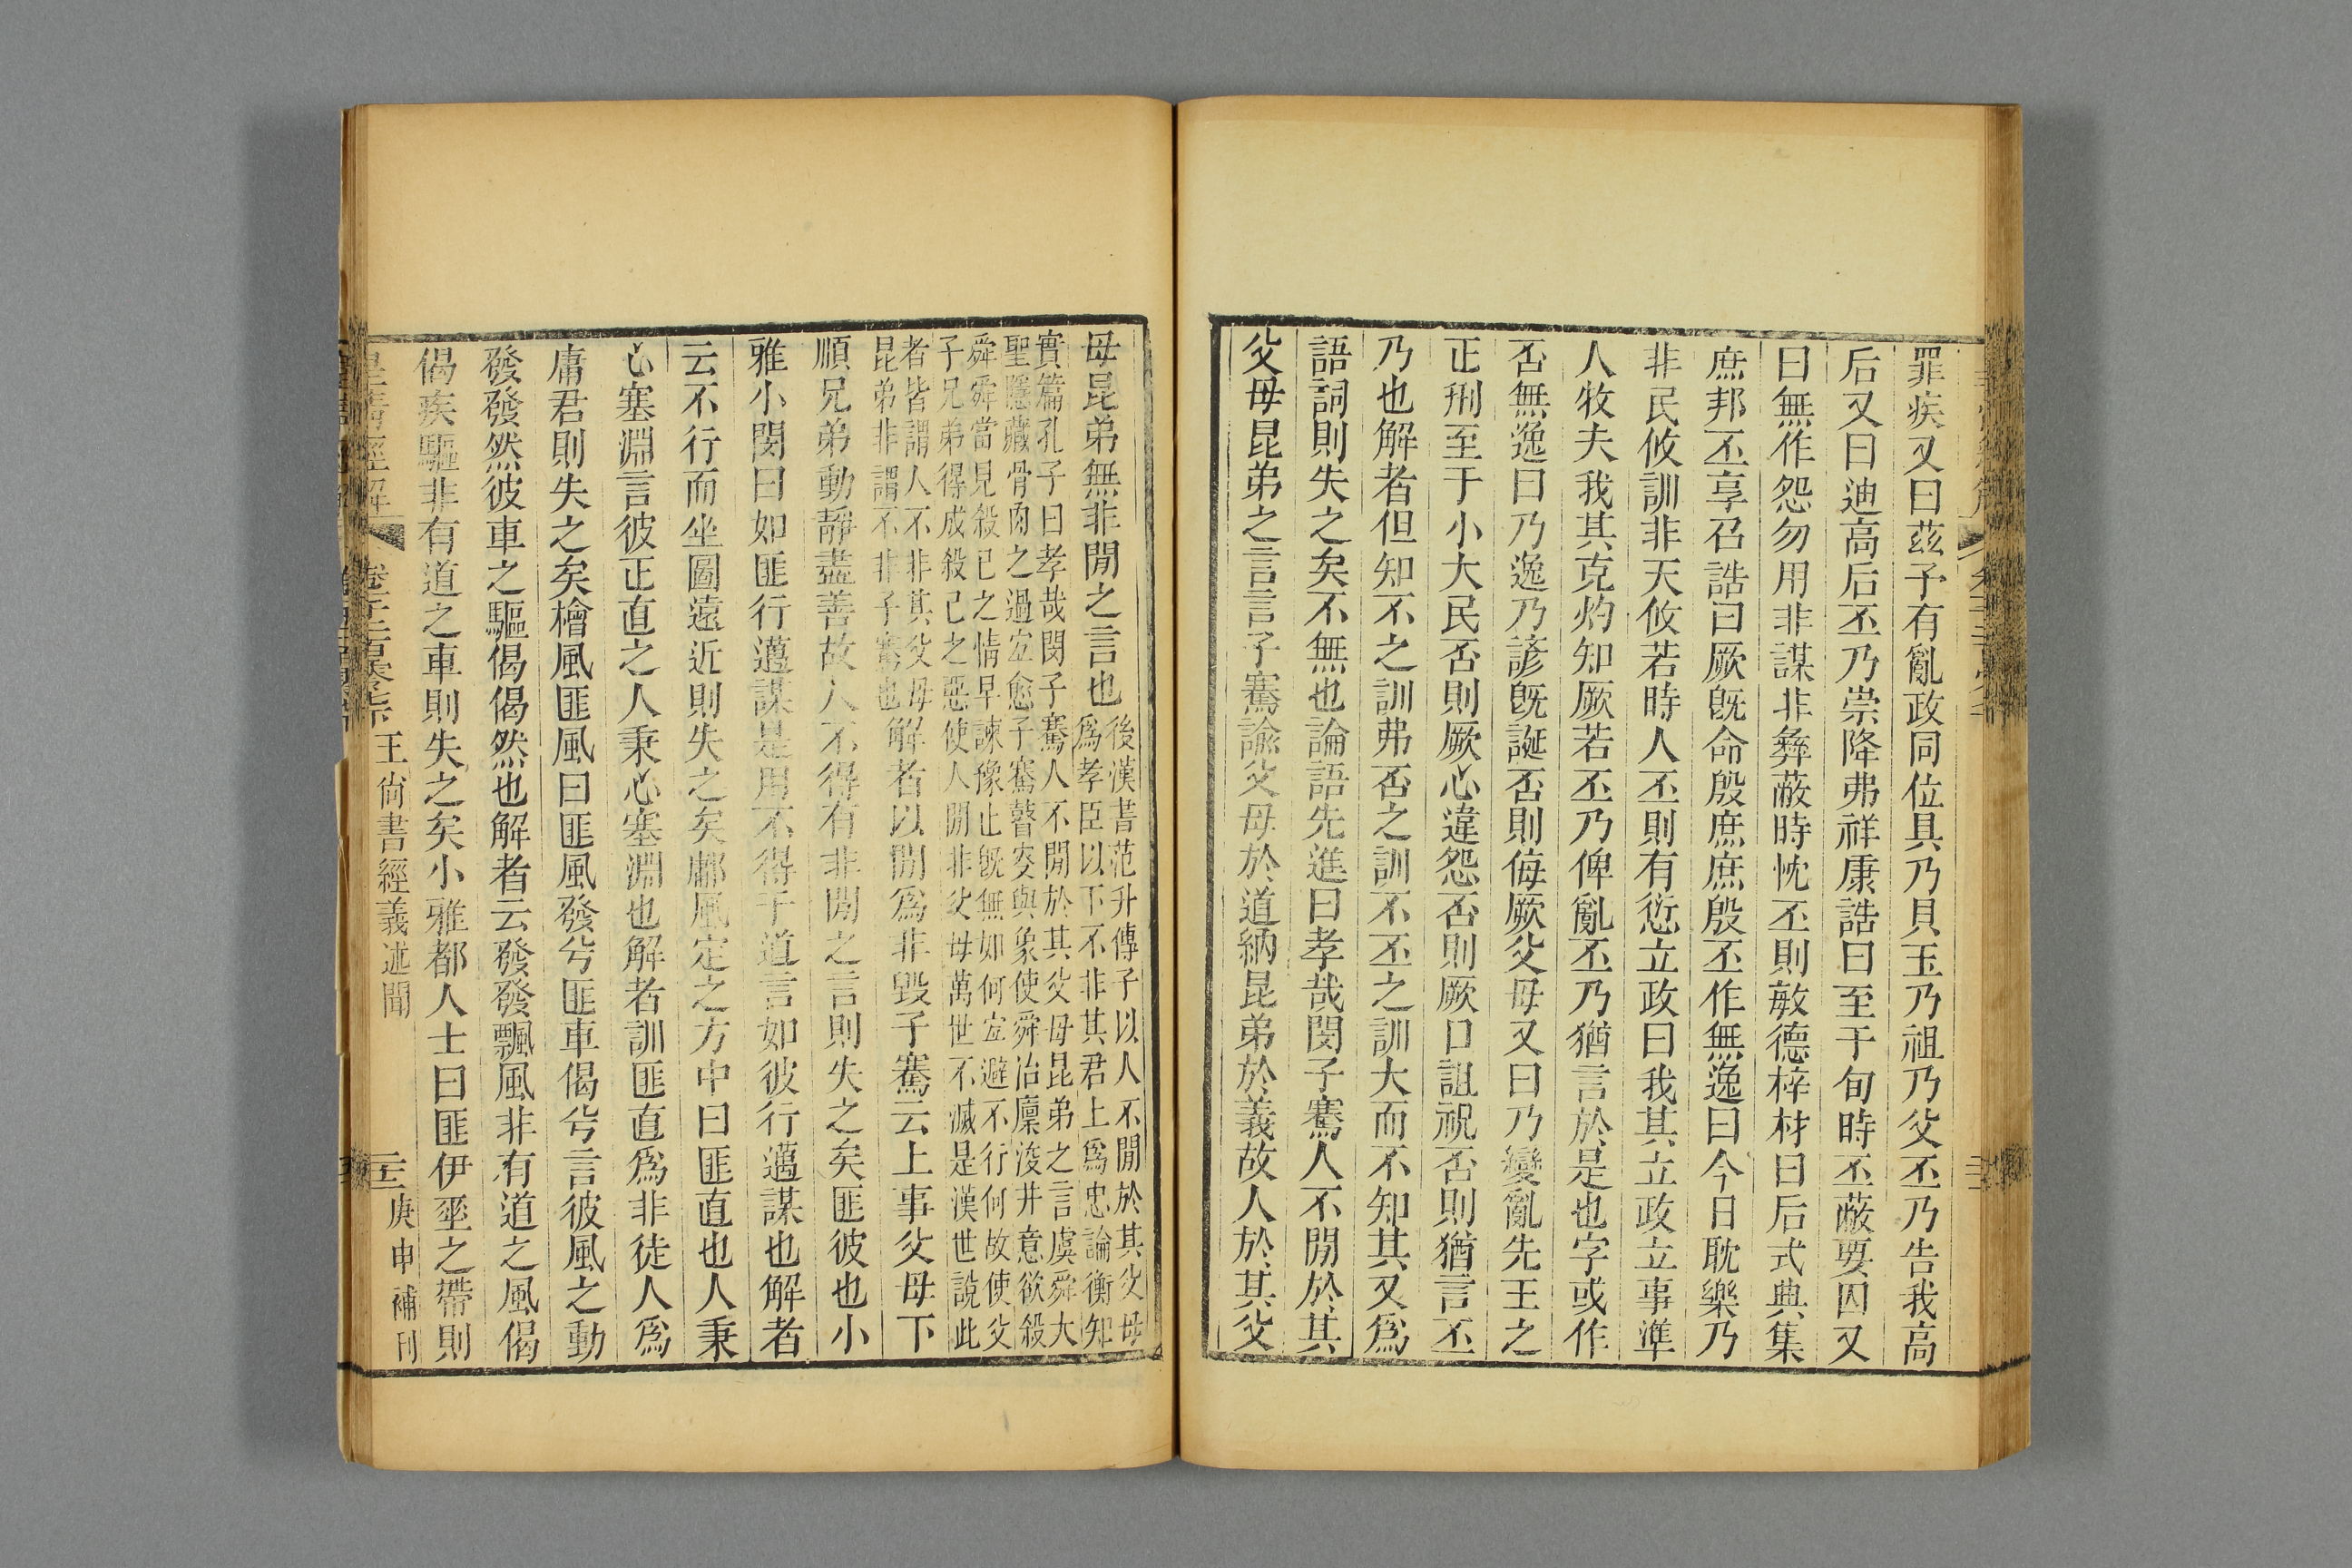 罪疾又曰茲予有亂政同位具乃貝玉乃祖乃父丕乃告我高
后又曰迪高后丕乃崇降弗祥康誥曰至于旬時丕蔽要囚又
曰無作怨勿用非謀非彝蔽時忱丕則敏德梓材曰后式典集
庶邦丕享召誥曰厥旣命殷庶庶殷丕作無逸曰今日耽樂乃
非民攸訓非天攸若時人丕則有愆立政曰我其立政立事準
人牧夫我其克灼知厥若丕乃俾亂丕乃猶言於是也字或作
否無逸曰乃逸乃諺旣誕否則侮厥父母又曰乃變亂先王之
正刑至于小大民否則厥心違怨否則厥口詛祝否則猶言丕
乃也解者但知不之訓弗否之訓不丕之訓大而不知其又爲
語詞則失之矣不無也論語先進曰孝哉閔子騫人不閒於其
父母昆弟之言言子騫諭父母於道納昆弟於義故人於其父
母昆弟無非閒之言也
後漢書范升傳子以人不閒於其父母
爲孝臣以下不非其君上爲忠論衡知
實篇孔子曰孝哉閔子騫人不閒於其父母昆弟之言虞舜大
聖隱藏骨肉之過宜愈子騫瞽叟與象使舜治廩浚井意欲殺
舜舜當見殺己之情早諫豫止旣無如何宜避不行何故使父
子兄弟得成殺己之惡使人閒非父母萬世不滅是漢世說此
者皆謂人不非其父母
昆弟非謂不非子騫也
解者以閒爲非毀子騫云上事父母下
順兄弟動靜盡善故人不得有非閒之言則失之矣匪彼也小
雅小閔曰如匪行邁謀是用不得于道言如彼行邁謀也解者
云不行而坐圖遠近則失之矣鄘風定之方中曰匪直也人秉
心塞淵言彼正直之人秉心塞淵也解者訓匪直爲非徒人爲
庸君則失之矣檜風匪風曰匪風發兮匪車偈兮言彼風之動
發發然彼車之驅偈偈然也解者云發發飄風非有道之風偈
偈疾驅非有道之車則失之矣小雅都人士曰匪伊垂之帶則
皇清經解
王尚書經義述聞
庚申補刊